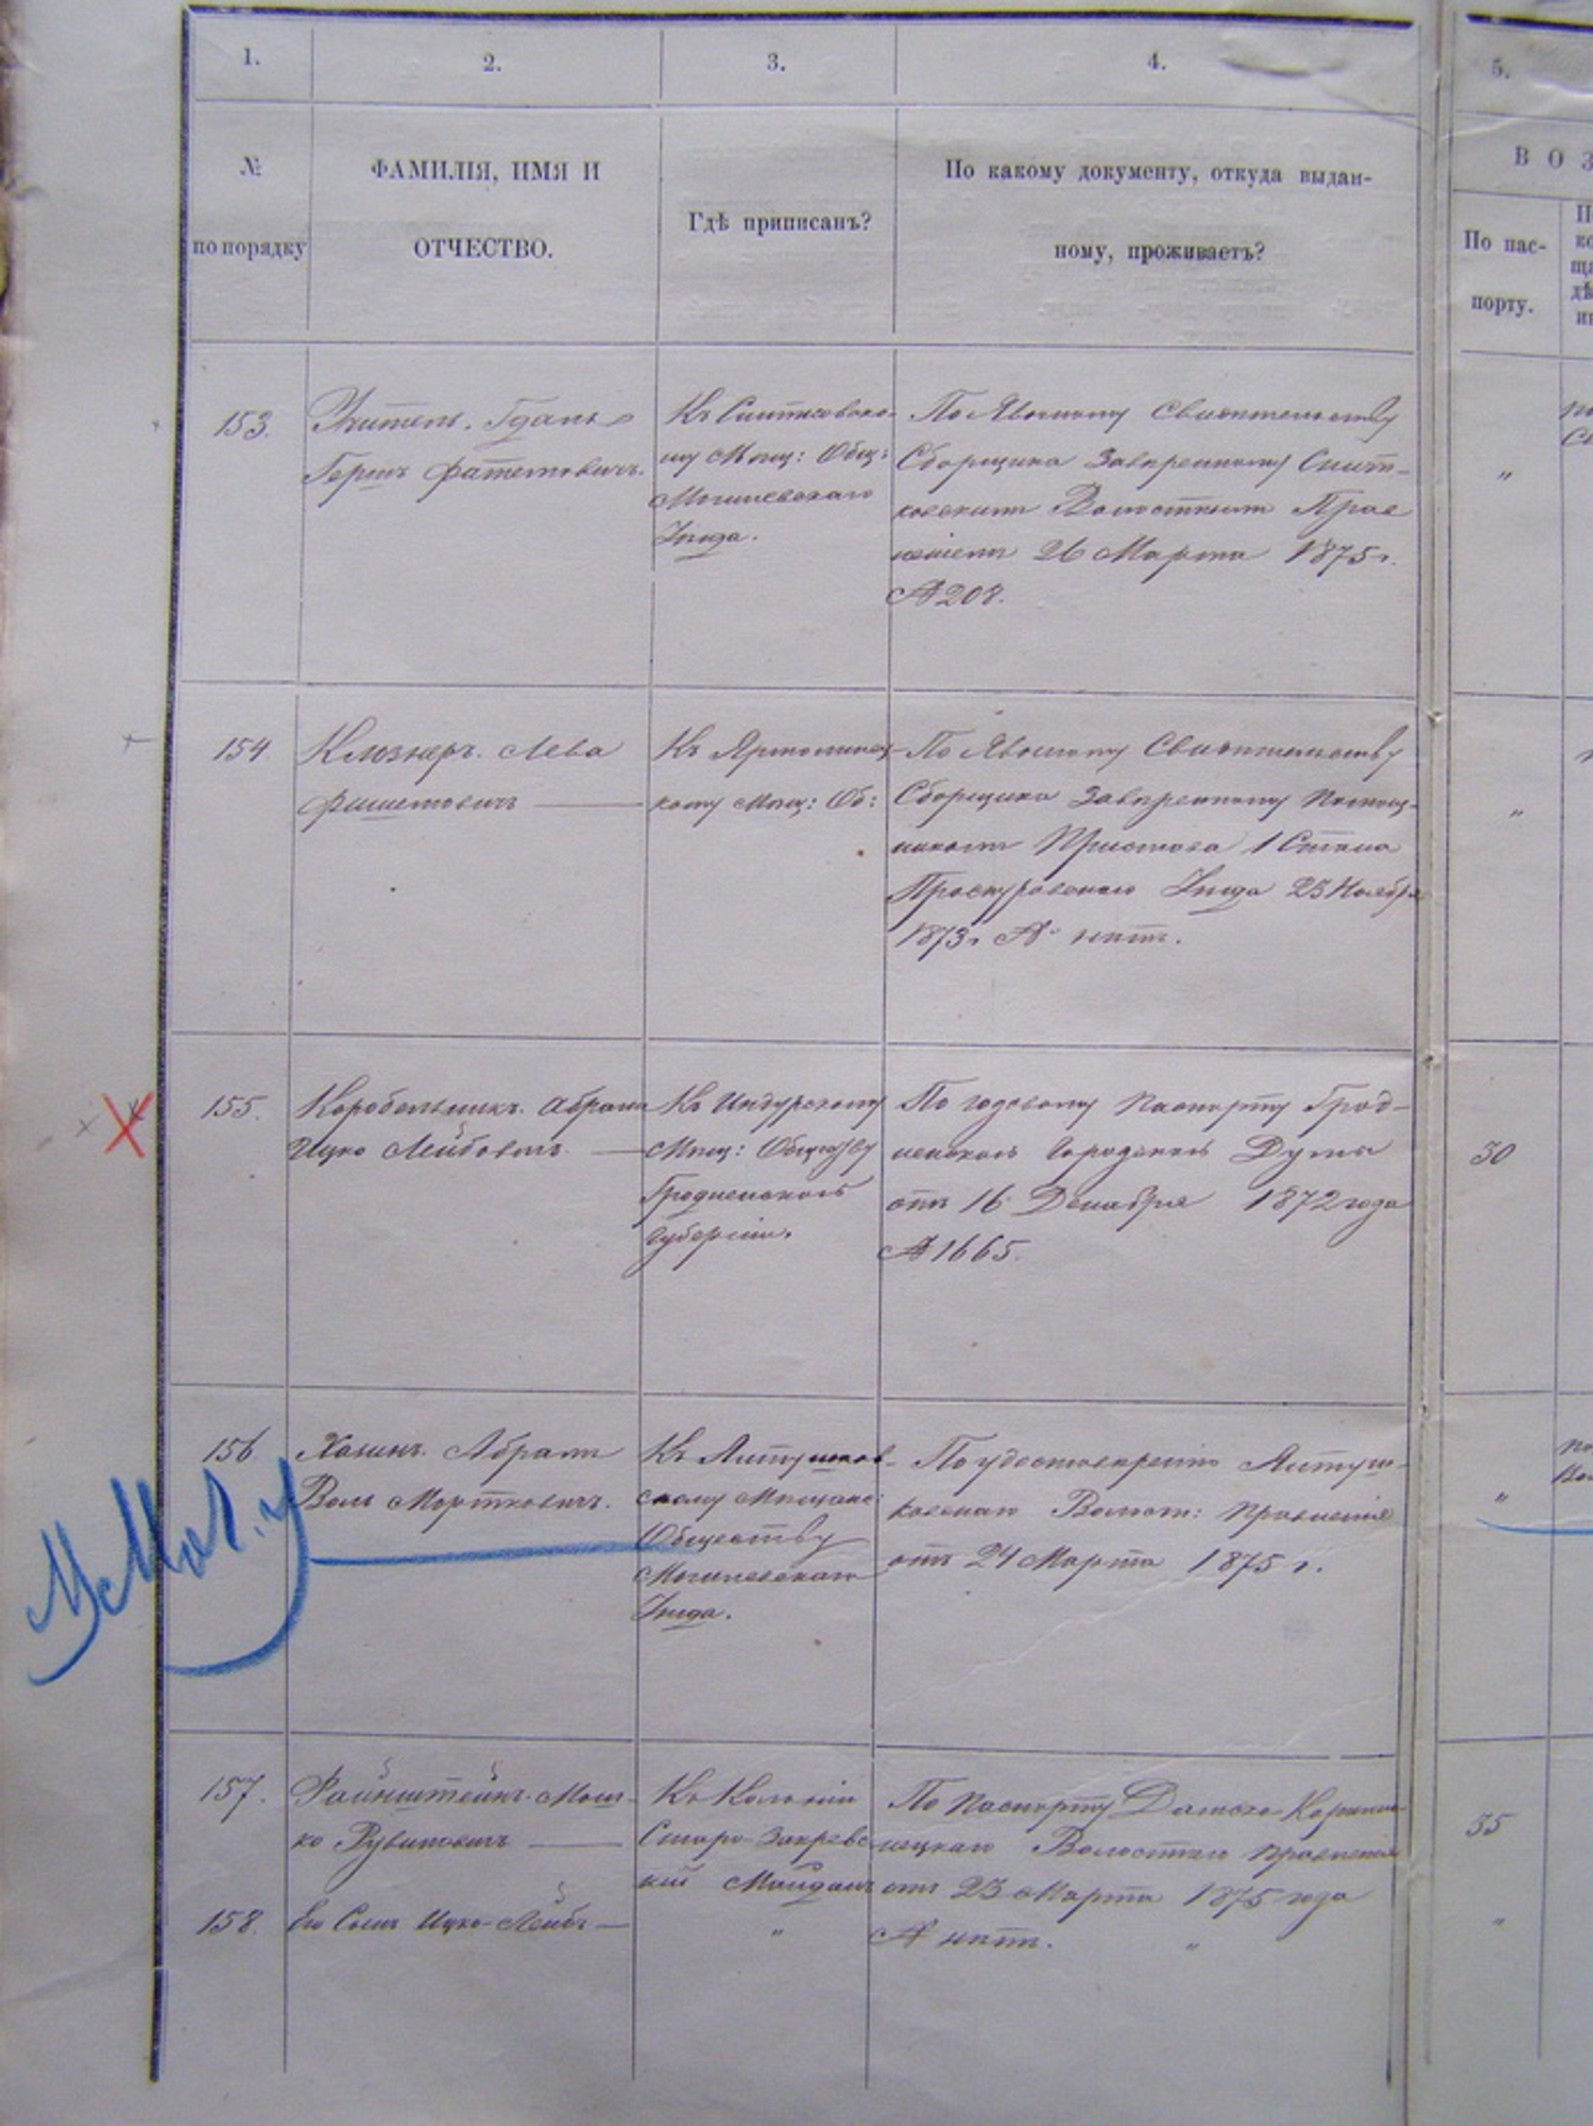 1.
2.
3.
4.
5.
№
по порядку
ФАМИЛІЯ, ИМЯ И
ОТЧЕСТВО.
Гдѣ приписанъ?
По какому документу, откуда выдан-
ному, проживаетъ?
В О З
По пас-
порту.
153.
Гершъ
Мѣщ: Общ:
Могилевскаго
Уѣзда.
По Явочному Свидѣтельству
Сборщика Завѣренному Снит-
ковскимъ Волостнымъ Прав
леніемъ 26 Марта 1875 г.
№ 208.
"
154.
Клюзнеръ. Лева
Фишелевичъ
Къ Ярмолинец-
кому Мѣщ: Об:
По Явочному Свидѣтельству
Сборщика Завѣренному Помощ-
никомъ Пристава 1 Стана
Проскуровскаго Уѣзда 25 Ноября
1873 г. № нѣтъ.
"
155.
Коробельникъ. Абрамъ
Ицко Лейбовичъ
Къ Индурскому
Мѣщ: Обществу
Гродненской
Губерніи.
По годовому Паспорту Грод-
ненской Городской Думы
отъ 16 Декабря 1872 года
№ 1665.
30
156
Хазинъ. Абрамъ
Волъ Мортковичъ.
Къ Литушков-
скому Мѣщанс:
Обществу
Могилевскаго
Уѣзда.
По удостовѣренію
Волост: Правленія
отъ 24 Марта 1875 г.
"
157.
Файнштейнъ. Мош-
ко Рувиновичъ
Къ Колоніи
Старо-Закрев
кій Майданъ
По Паспорту
Волостнаго Правленія
отъ 23 Марта 1875 года
№ нѣтъ.
35
158.
Его Сынъ Ицко-Лейбъ
"
"
"